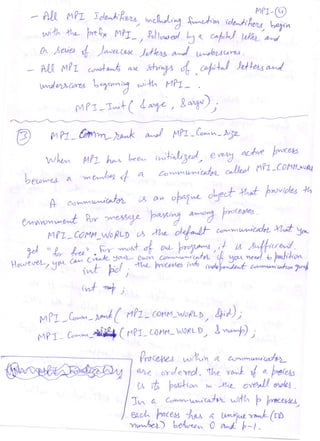 MPI-(3)
- All MPI Identifiers, including function identifiers, begin
with the prefix MPI_, followed by a capital letter and
a series of lowercase letters and underscores.
- All MPI constants are strings of capital letters and
underscores beginning with MPI_.
MPI_Init( &argc, &argv);
(3) MPI_Comm_rank and MPI_Comm_size
When MPI has been initialized, every active process
becomes a member of a communicator called MPI_COMM_WORLD
A communicator is an opaque object that provides the
environment for message passing among processes.
MPI_COMM_WORLD is the default communicator that you
get "for free". For most of our programs, it is sufficient.
However, you can create your own communicators if you need to partition
int pid; the processes into independent communication groups
int nump;
MPI_Comm_rank( MPI_COMM_WORLD, &pid);
MPI_Comm_ ( MPI_COMM_WORLD, &nump);
Processes within a communicator
are ordered. The rank of a process
is its position in the overall order.
In a communicator with p processes,
each process has a unique rank (ID
number) between 0 and p-1.